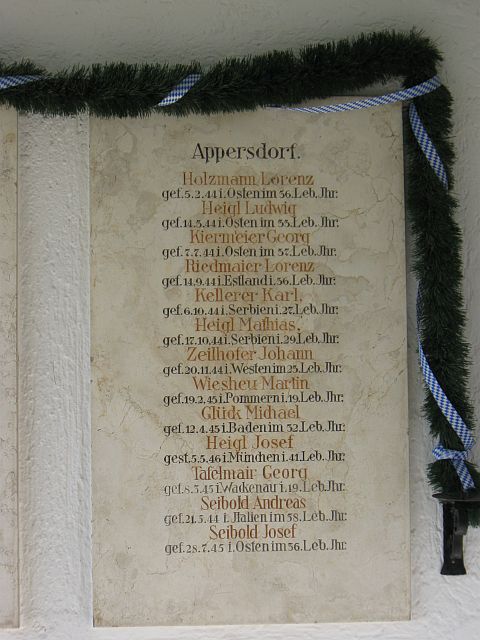 Appersdorf.
Holzmann Lorenz
gef. 5.2.44 i. Osten im 36. Leb. Jhr.
Heigl Ludwig
gef. 14.3.44 i. Osten im 33. Leb. Jhr.
Kiermeier Georg
gef. 7.7.44 i. Osten im 37. Leb. Jhr.
Riedmaier Lorenz
gef. 14.9.44 i. Estland i. 36. Leb. Jhr.
Kellerer Karl,
gef. 6.10.44 i. Serbien i. 27. Leb. Jhr.
Heigl Mathias,
gef. 17.10.44 i. Serbien i. 29. Leb. Jhr.
Zeilhofer Johann
gef. 20.11.44 i. Westen im 25. Leb. Jhr.
Wiesheu Martin
gef. 19.2.45 i. Pommern i. 19. Leb. Jhr.
Glück Michael
gef. 12.4.45 i. Baden im 32. Leb. Jhr.
Heigl Josef
gest. 5.5.46 i. München i. 41. Leb. Jhr.
Tafelmair Georg
gef. 8.3.45 i. Wackenau i. 19. Leb. Jhr.
Seibold Andreas
gef. 21.5.44 i. Jtalien im 38. Leb. Jhr.
Seibold Josef
gef. 28.7.45 i. Osten im 36. Leb. Jhr.